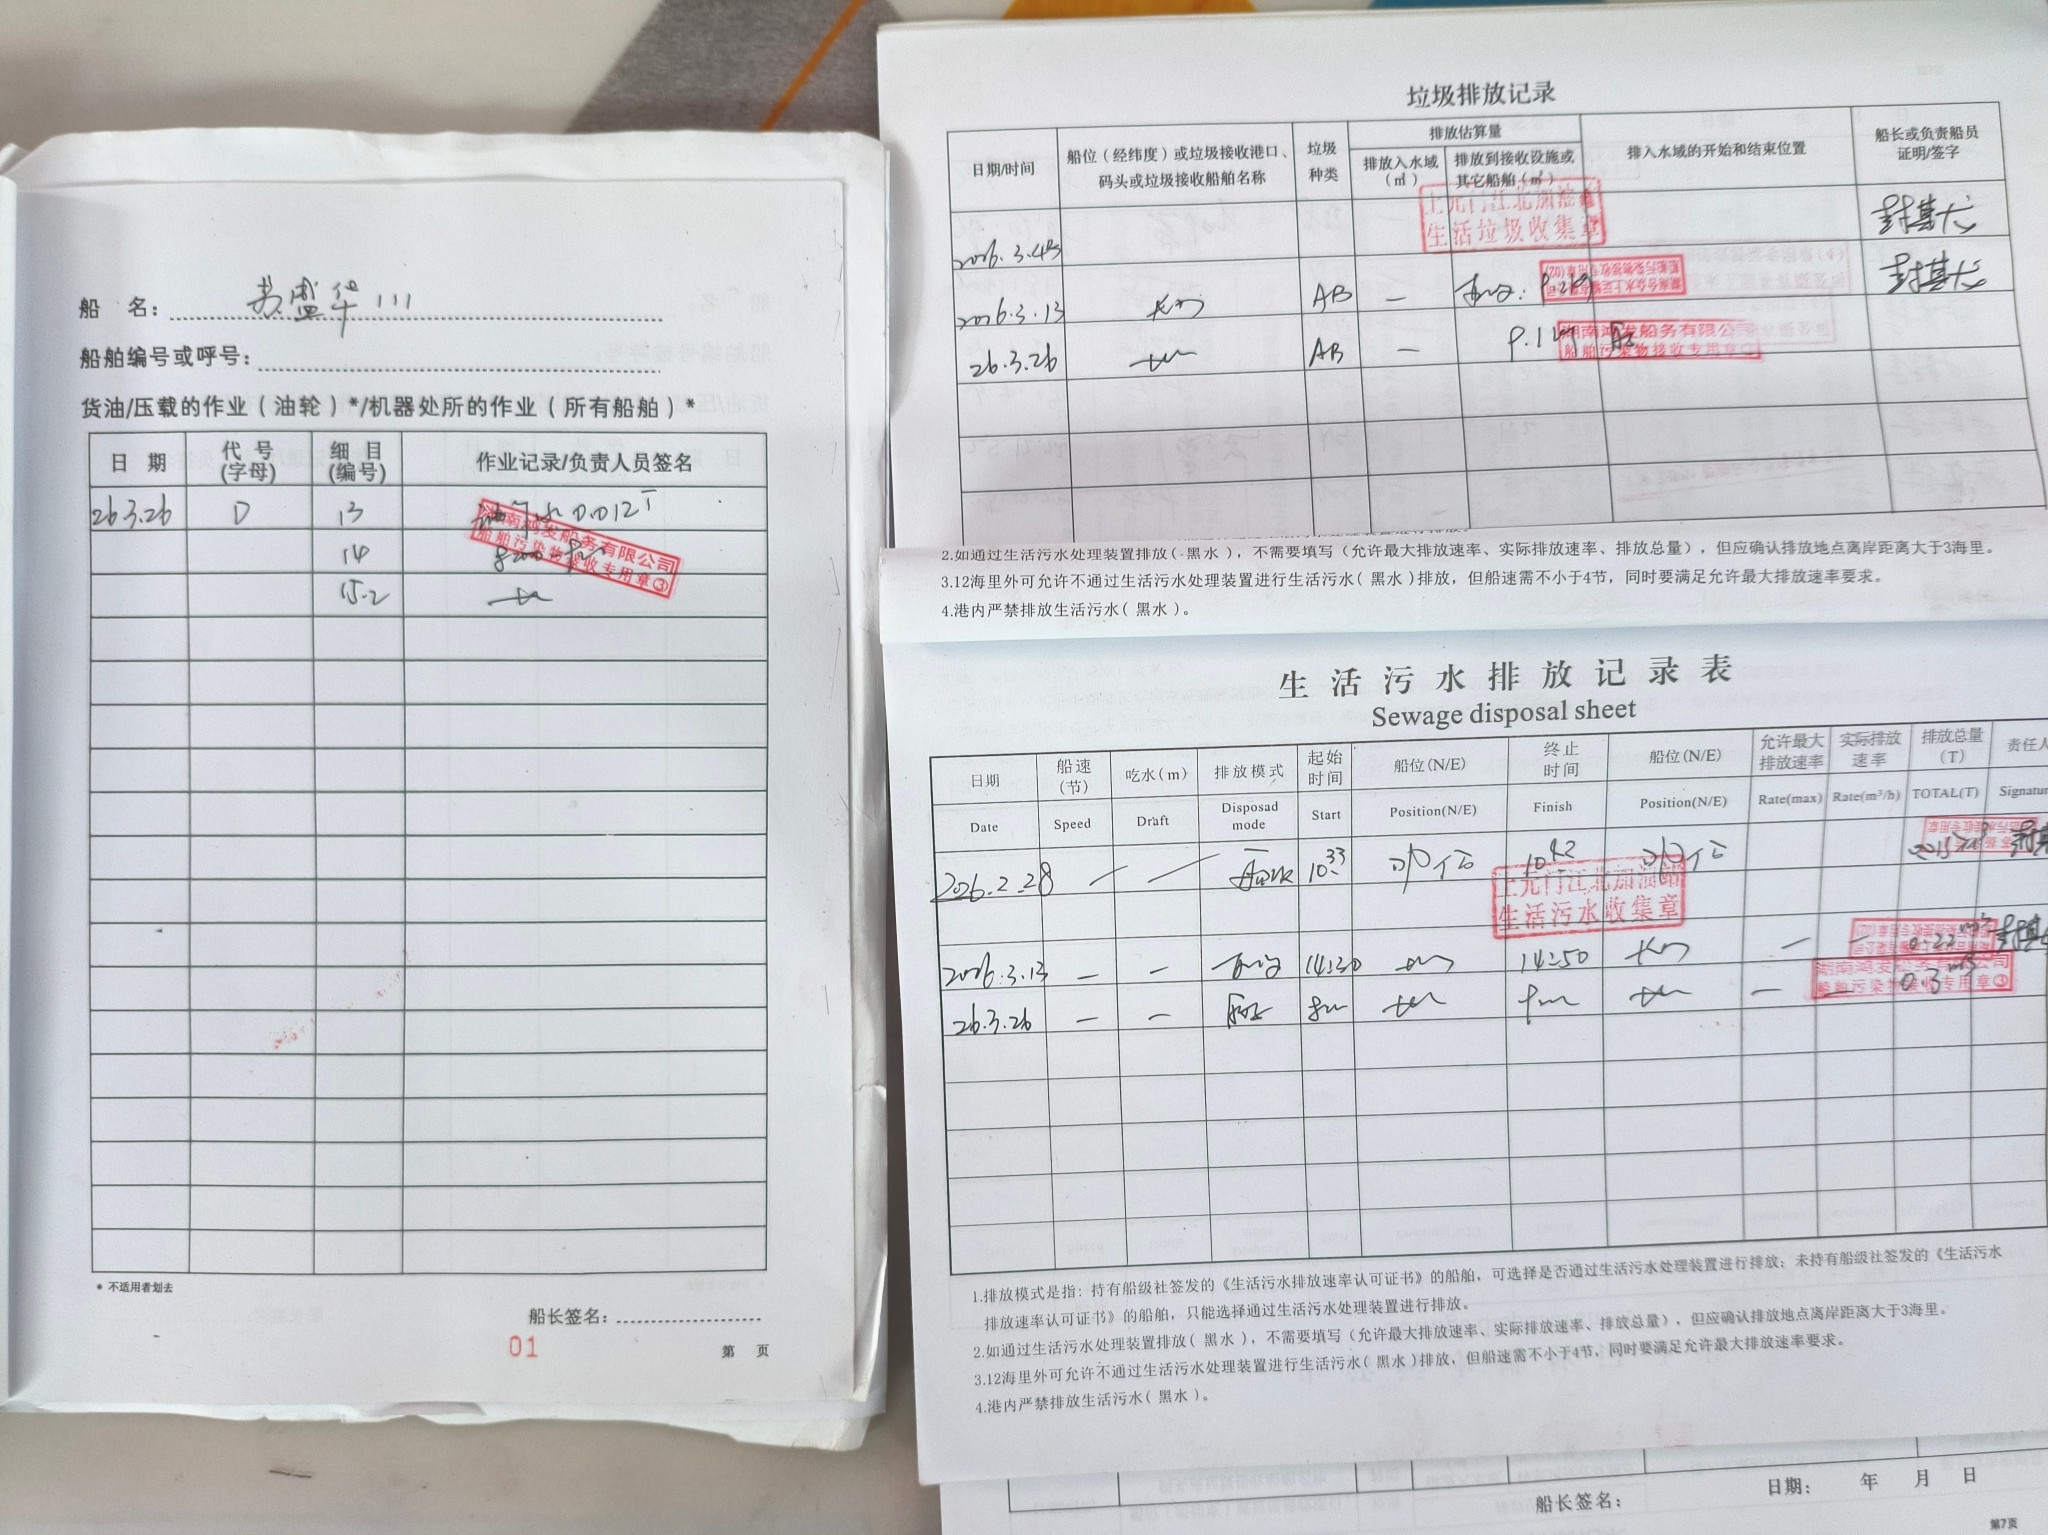 船 名： 苏盛华111
船舶编号或呼号：
货油/压载的作业（油轮）*/机器处所的作业（所有船舶）*
日 期 代 号 (字母) 细 目 (编号) 作业记录/负责人员签名
26.3.26 D 13 水0.012T
14
15.2
湖南鸿发船务有限公司
船舶污染物接收专用章③
* 不适用者划去
船长签名：
01
第 页
垃圾排放记录
日期/时间 船位（经纬度）或垃圾接收港口、码头或垃圾接收船舶名称 垃圾种类 排放估算量 排入水域的开始和结束位置 船长或负责船员证明/签字
排放入水域(㎥) 排放到接收设施或其它船舶(㎥)
上元门江北加油站
生活垃圾收集章
2026.3.4
2026.3.13 AB —
26.3.26 AB —
湖南鸿发船务有限公司
船舶污染物接收专用章③
2.如通过生活污水处理装置排放( 黑水 )，不需要填写（允许最大排放速率、实际排放速率、排放总量），但应确认排放地点离岸距离大于3海里。
3.12海里外可允许不通过生活污水处理装置进行生活污水( 黑水 )排放，但船速需不小于4节，同时要满足允许最大排放速率要求。
4.港内严禁排放生活污水( 黑水 )。
生活污水排放记录表
Sewage disposal sheet
日期 船速(节) 吃水(m) 排放模式 起始时间 船位(N/E) 终止时间 船位(N/E) 允许最大排放速率 实际排放速率 排放总量(T) 责任人
Date Speed Draft Disposad mode Start Position(N/E) Finish Position(N/E) Rate(max) Rate(m³/h) TOTAL(T) Signatur
2026.2.28 — — 10 33 10 42
上元门江北加油站
生活污水收集章
2026.3.13 — — 14:30 14:50 — — 0.22m³
26.3.26 — — — — 0.3m³
湖南鸿发船务有限公司
船舶污染物接收专用章③
1.排放模式是指：持有船级社签发的《生活污水排放速率认可证书》的船舶，可选择是否通过生活污水处理装置进行排放；未持有船级社签发的《生活污水
排放速率认可证书》的船舶，只能选择通过生活污水处理装置进行排放。
2.如通过生活污水处理装置排放( 黑水 )，不需要填写（允许最大排放速率、实际排放速率、排放总量），但应确认排放地点离岸距离大于3海里。
3.12海里外可允许不通过生活污水处理装置进行生活污水( 黑水 )排放，但船速需不小于4节，同时要满足允许最大排放速率要求。
4.港内严禁排放生活污水( 黑水 )。
船长签名： 日期： 年 月 日
第7页